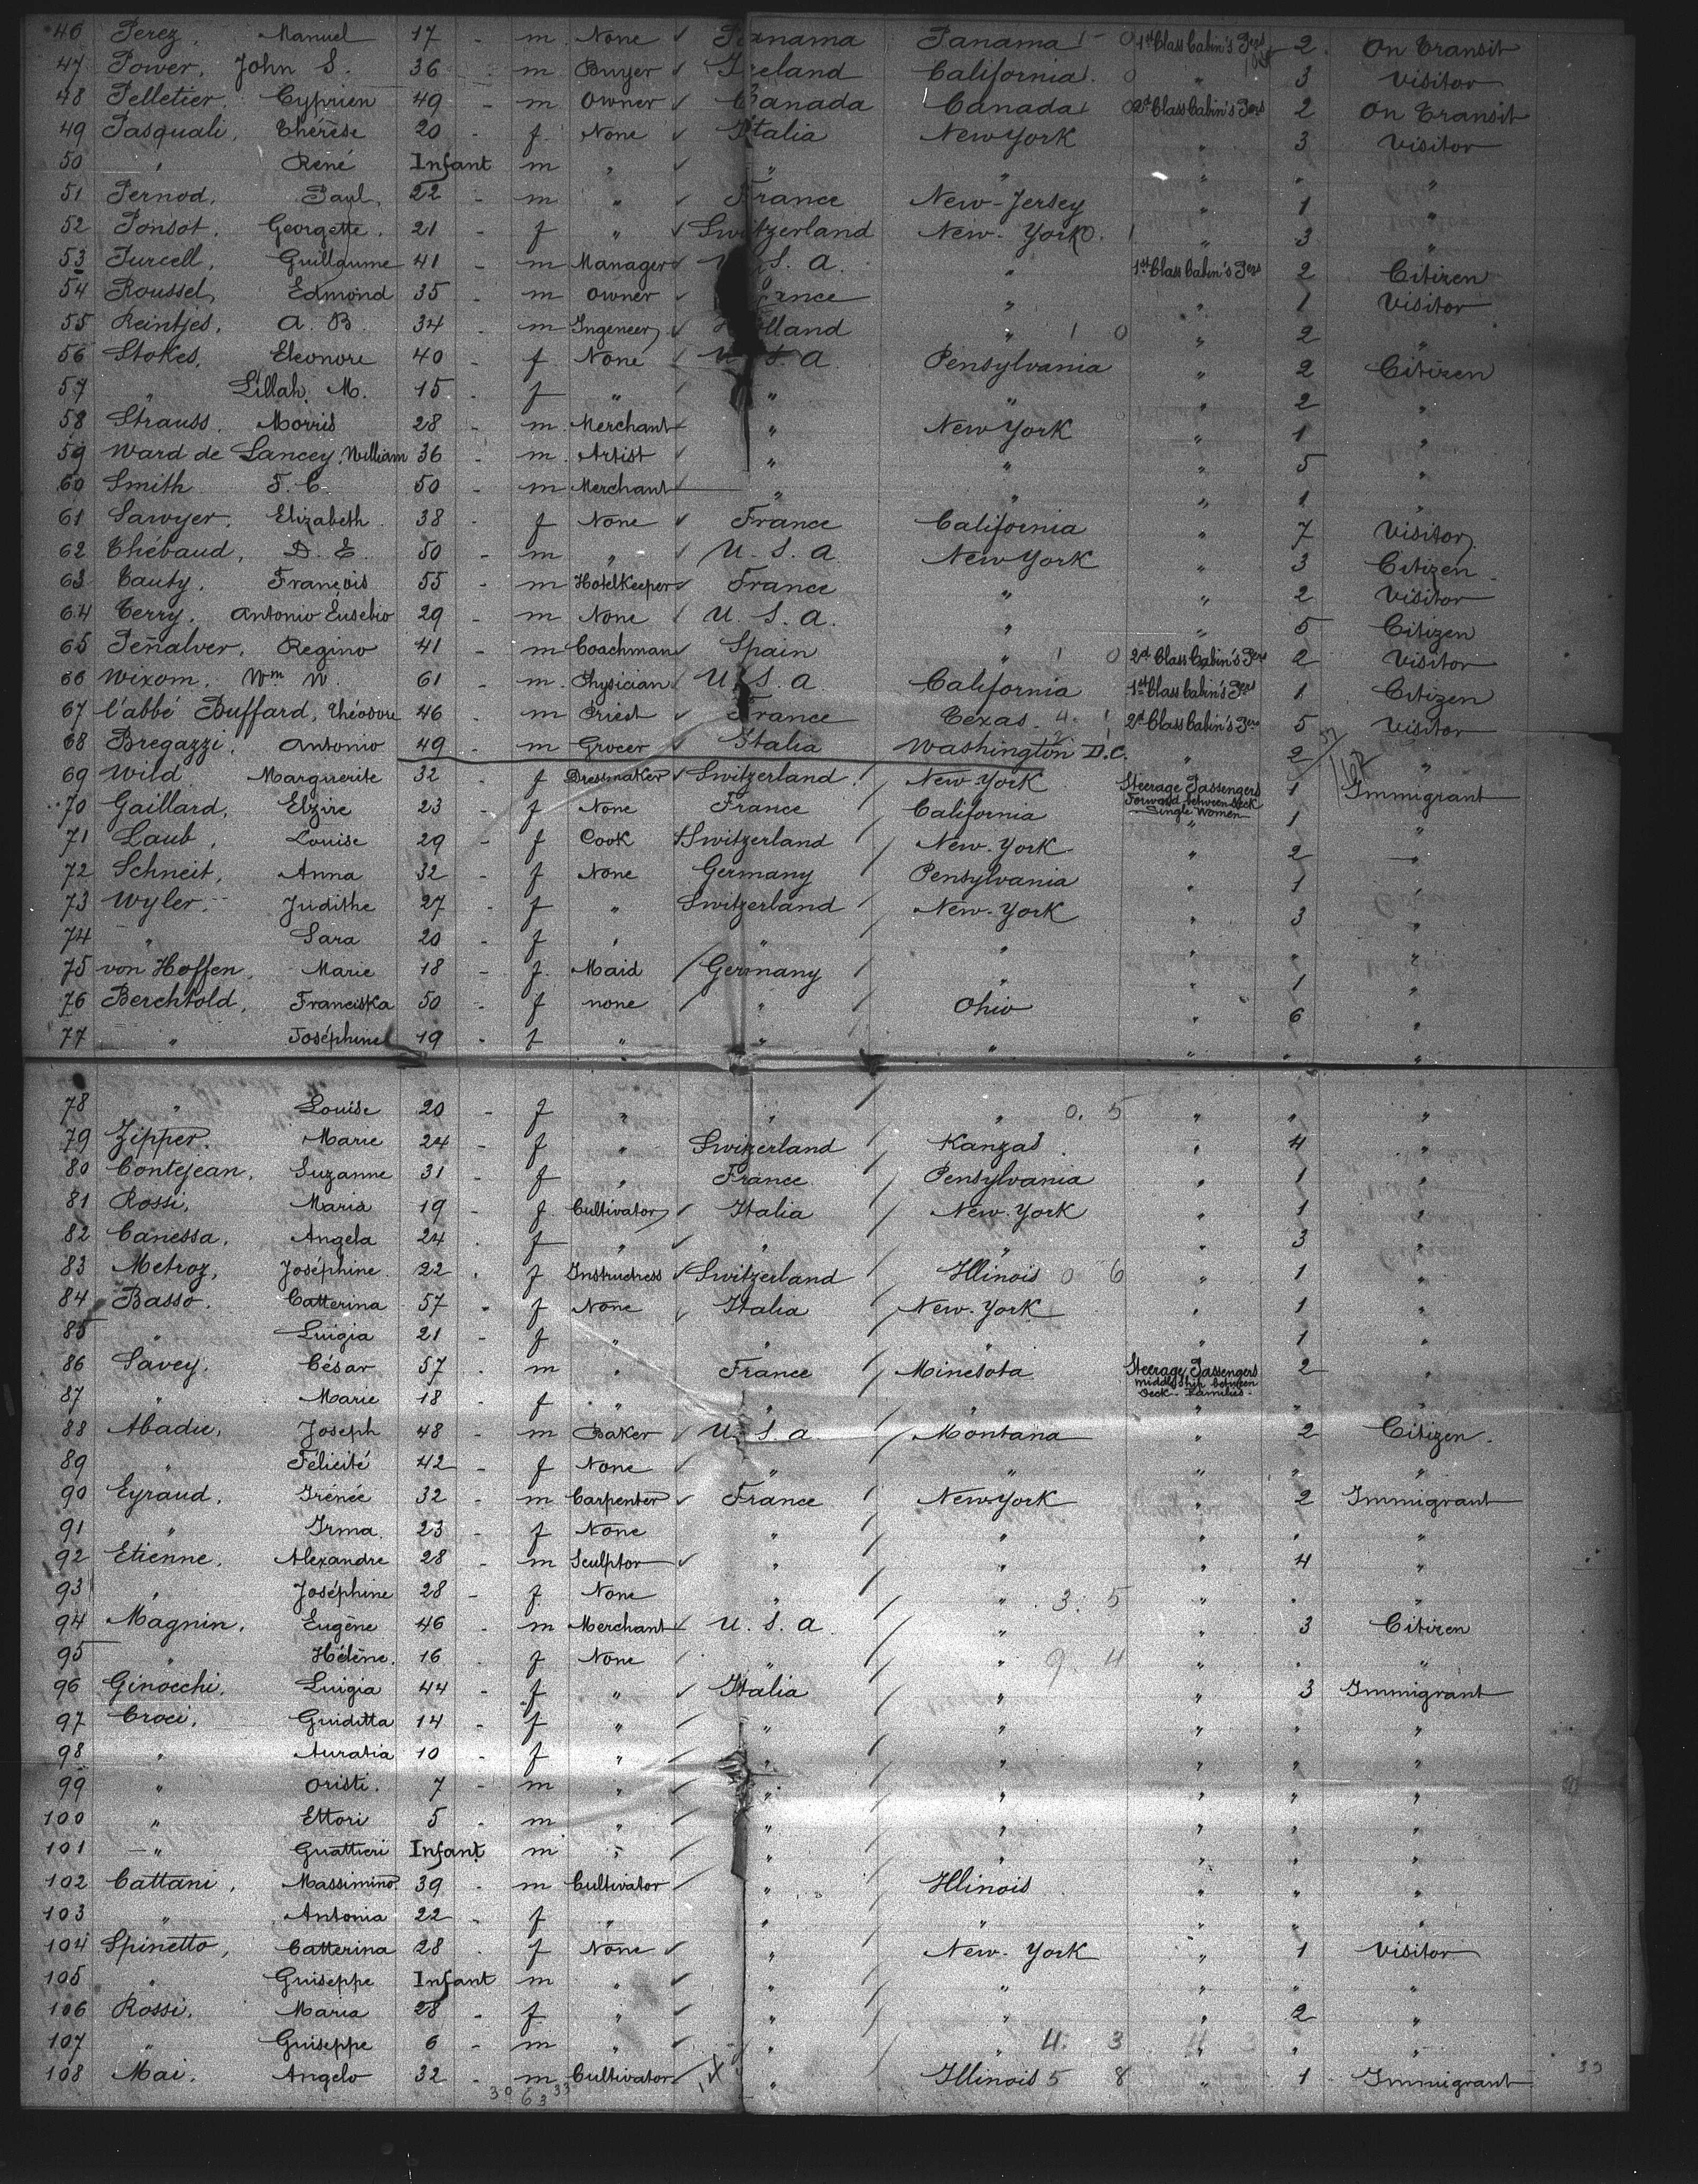 46 Perez, Manuel 17 - m None ✓ Panama Panama 1st Class Cabin's Pgrs 2 On Transit
47 Power, John S. 36 - m Buyer ✓ Ireland California " 3 Visitor
48 Pelletier, Cyprien 49 - m Owner ✓ Canada Canada 2d Class Cabin's Pgrs 2 On Transit
49 Pasquali, Thérèse 20 - f None ✓ Italia New York " 3 Visitor
50 " René Infant m " ✓ " " " " "
51 Pernod, Paul, 22 - m " ✓ France New-Jersey " 1 "
52 Ponsot, Georgette 21 - f " ✓ Switzerland New-York " 3 "
53 Purcell, Guillaume 41 - m Manager ✓ U. S. A. " 1st Class Cabin's Pgrs 2 Citizen
54 Roussel, Edmond 35 - m Owner ✓ France " " 1 Visitor
55 Reintjes, A. B. 34 - m Ingeneer ✓ Holland " 1 0 " 2 "
56 Stokes, Eleonore 40 - f None ✓ U. S. A. Pensylvania " 2 Citizen
57 " Lillah. M. 15 - f " ✓ " " " 2 "
58 Strauss, Morris 28 - m Merchant ✓ " New York " 1 "
59 Ward de Lancey, William 36 - m Artist ✓ " " " 5 "
60 Smith F. C. 50 - m Merchant " " " 1 "
61 Sawyer, Elizabeth 38 - f None ✓ France California " 7 Visitor
62 Thébaud, D. E. 50 - m " ✓ U. S. A. New York " 3 Citizen
63 Tauty, François 55 - m Hotelkeeper ✓ France " " 2 Visitor
64 Terry, Antonio Eusebio 29 - m None ✓ U. S. A. " " 5 Citizen
65 Peñalver, Regino 41 - m Coachman ✓ Spain " 1 0 2d Class Cabin's Pgrs 2 Visitor
66 Wixom, Wm W. 61 - m Physician ✓ U. S. A. California 1st Class Cabin's Pgrs 1 Citizen
67 l'abbé Buffard, Théodore 46 - m Priest ✓ France Texas 2d Class Cabin's Pgrs 5 Visitor
68 Bregazzi, Antonio 49 - m Grocer ✓ Italia Washington D.C. " 2 "
69 Wild Marguerite 32 - f Dressmaker ✓ Switzerland New-York Steerage Passengers Forward between deck Single Women 1 Immigrant
70 Gaillard, Elzire 23 - f None France California " 1 "
71 Laub, Louise 29 - f Cook Switzerland New-York " 2 "
72 Schneit, Anna 32 - f None Germany Pensylvania " 1 "
73 Wyler, Judithe 27 - f " Switzerland New-York " 3 "
74 " Sara 20 - f " " " " " "
75 von Hoffen, Marie 18 - f Maid Germany " " 1 "
76 Berchtold, Franciska 50 - f none " Ohio " 6 "
77 " Joséphine 19 - f " " " " " "
78 " Louise 20 - f " " " 0. 5 " " "
79 Zipper, Marie 24 - f " Switzerland Kanzas " 4 "
80 Contejean, Suzanne 31 - f " France Pensylvania " 1 "
81 Rossi, Maria 19 - f Cultivator ✓ Italia New-York " 1 "
82 Canessa, Angela 24 - f " ✓ " " " 3 "
83 Metroz, Joséphine 22 - f Instructress ✓ Switzerland Illinois 0 6 " 1 "
84 Basso, Catterina 57 - f None ✓ Italia New-York " 1 "
85 " Luigia 21 - f " " " " 1 "
86 Savey, César 57 - m " France Minesota Steerage Passengers middleship between deck - Families 2 "
87 " Marie 18 - f " " " " " "
88 Abadie, Joseph 48 - m Baker ✓ U. S. A Montana " 2 Citizen
89 " Félicité 42 - f None ✓ " " " " "
90 Eyraud, Irénée 32 - m Carpenter ✓ France New York " 2 Immigrant
91 " Irma 23 - f None " " " " "
92 Etienne, Alexandre 28 - m Sculptor ✓ " " " 4 "
93 " Joséphine 28 - f None " " 3. 5 " " "
94 Magnin, Eugène 46 - m Merchant ✓ U. S. A. " " 3 Citizen
95 " Hélène 16 - f None " " 9. 4 " " "
96 Ginocchi, Luigia 44 - f " ✓ Italia " " 3 Immigrant
97 Croci, Guiditta 14 - f " " " " " "
98 " Auratia 10 - f " " " " " "
99 " Oristi 7 - m " " " " " "
100 " Ettori 5 - m " " " " " "
101 " Guattieri Infant m " " " " " "
102 Cattani, Massimino 39 - m Cultivator " Illinois " " "
103 " Antonia 22 - f " " " " " "
104 Spinetto, Catterina 28 - f None ✓ " New-York " 1 Visitor
105 " Guiseppe Infant m " ✓ " " " " "
106 Rossi, Maria 28 - f " ✓ " " " 2 "
107 " Guiseppe 6 - m " ✓ " " 4. 3 " " "
108 Mai, Angelo 32 - m Cultivator " Illinois 5 8 " 1 Immigrant
30 63 33